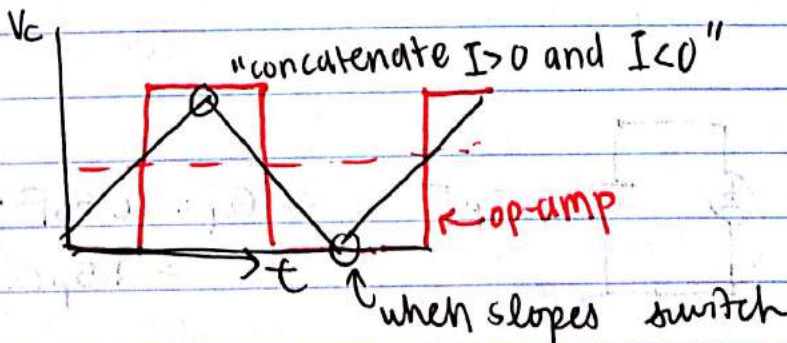 Vc
"concatenate I>0 and I<0"
←op-amp
t
when slopes switch